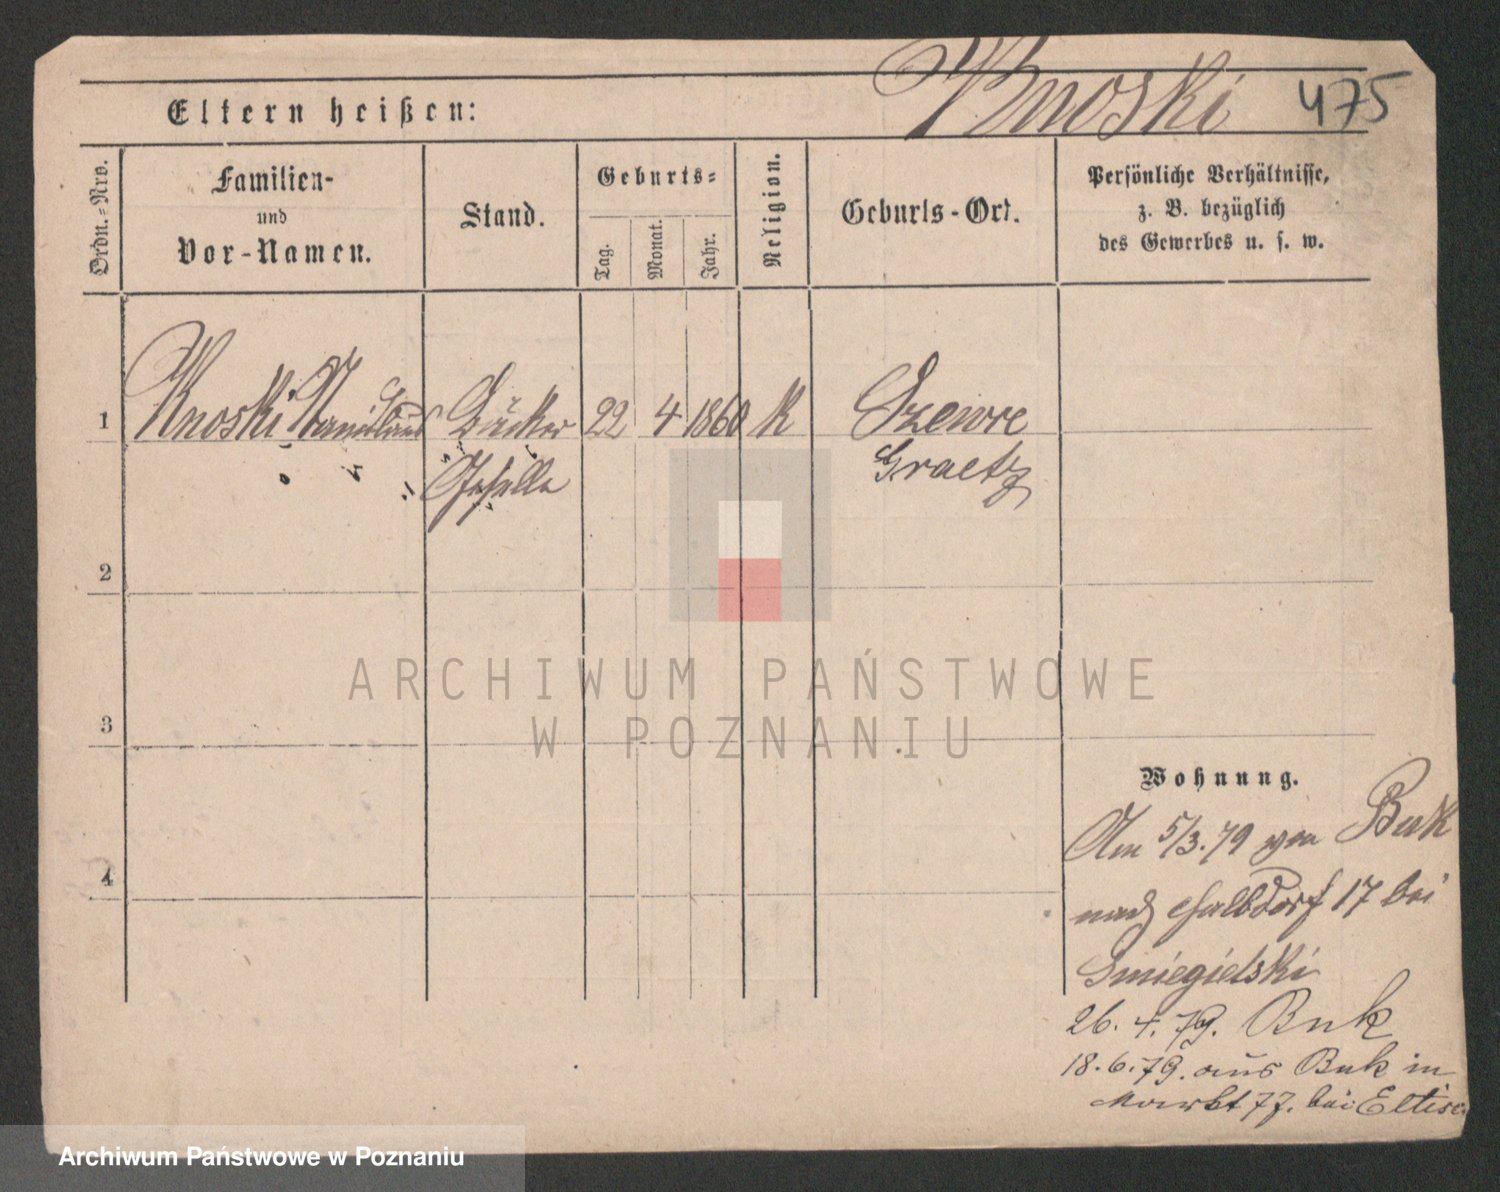 Knoski 475
Eltern heißen:
Ordn.=Nro.
Familien-
und
Vor-Namen.
Stand.
Geburts=
Tag.
Monat.
Jahr.
Religion.
Geburts-Ort.
Persönliche Verhältnisse,
z. B. bezüglich
des Gewerbes u. s. w.
1 Knoski Stanislaus Bäcker 22 4 1860 K Szewce
Geselle Graetz
2
3
4
Wohnung.
Am 5/3. 79 von Buk
nach Halbdorf 17 bei
Smiegielski
26. 4. 79. Buk
18. 6. 79. aus Buk in
Markt 77. bei
ARCHIWUM PAŃSTWOWE
W POZNANIU
Archiwum Państwowe w Poznaniu